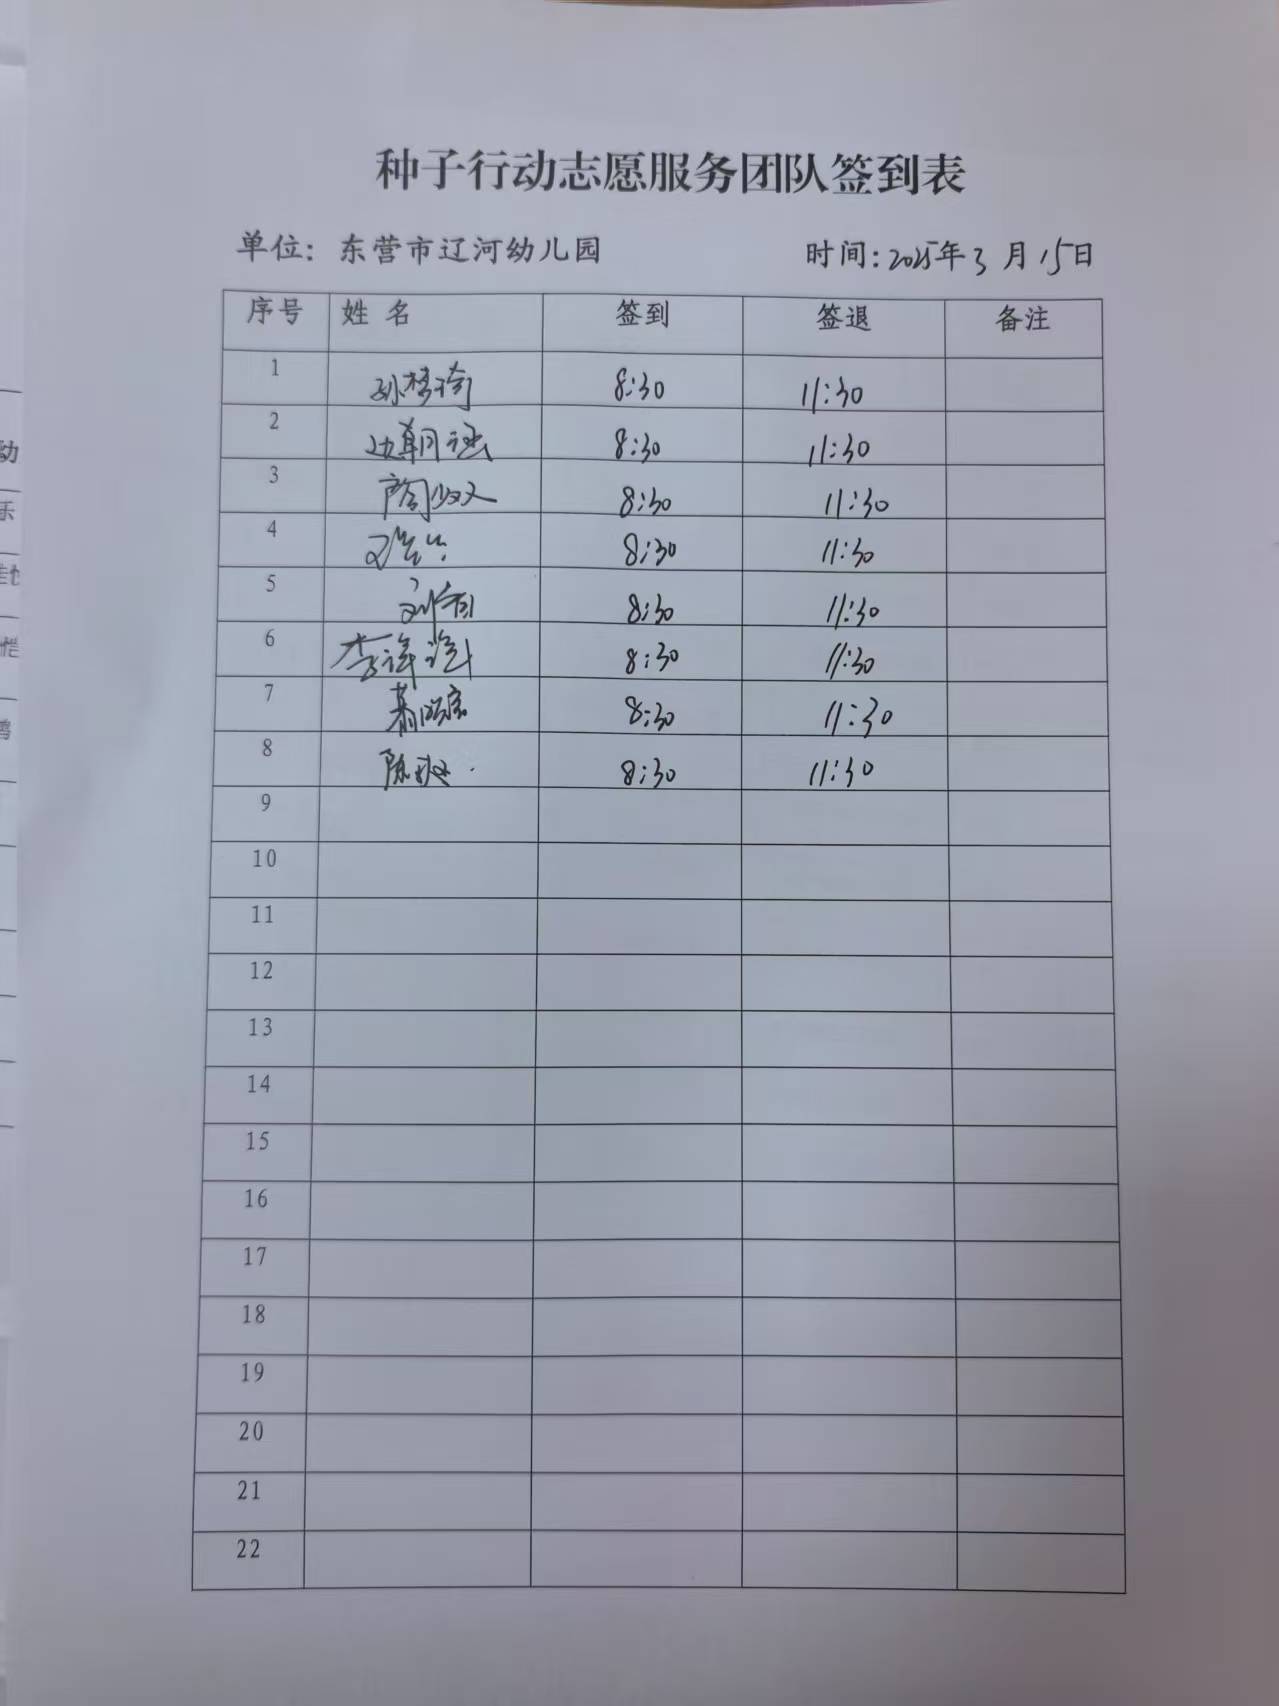 种子行动志愿服务团队签到表
单位：东营市辽河幼儿园 时间：2025年3月15日
序号 姓名 签到 签退 备注
1 孙梦琦 8:30 11:30
2 边朝涵 8:30 11:30
3 8:30 11:30
4 8:30 11:30
5 8:30 11:30
6 李 8:30 11:30
7 8:30 11:30
8 陈 8:30 11:30
9
10
11
12
13
14
15
16
17
18
19
20
21
22